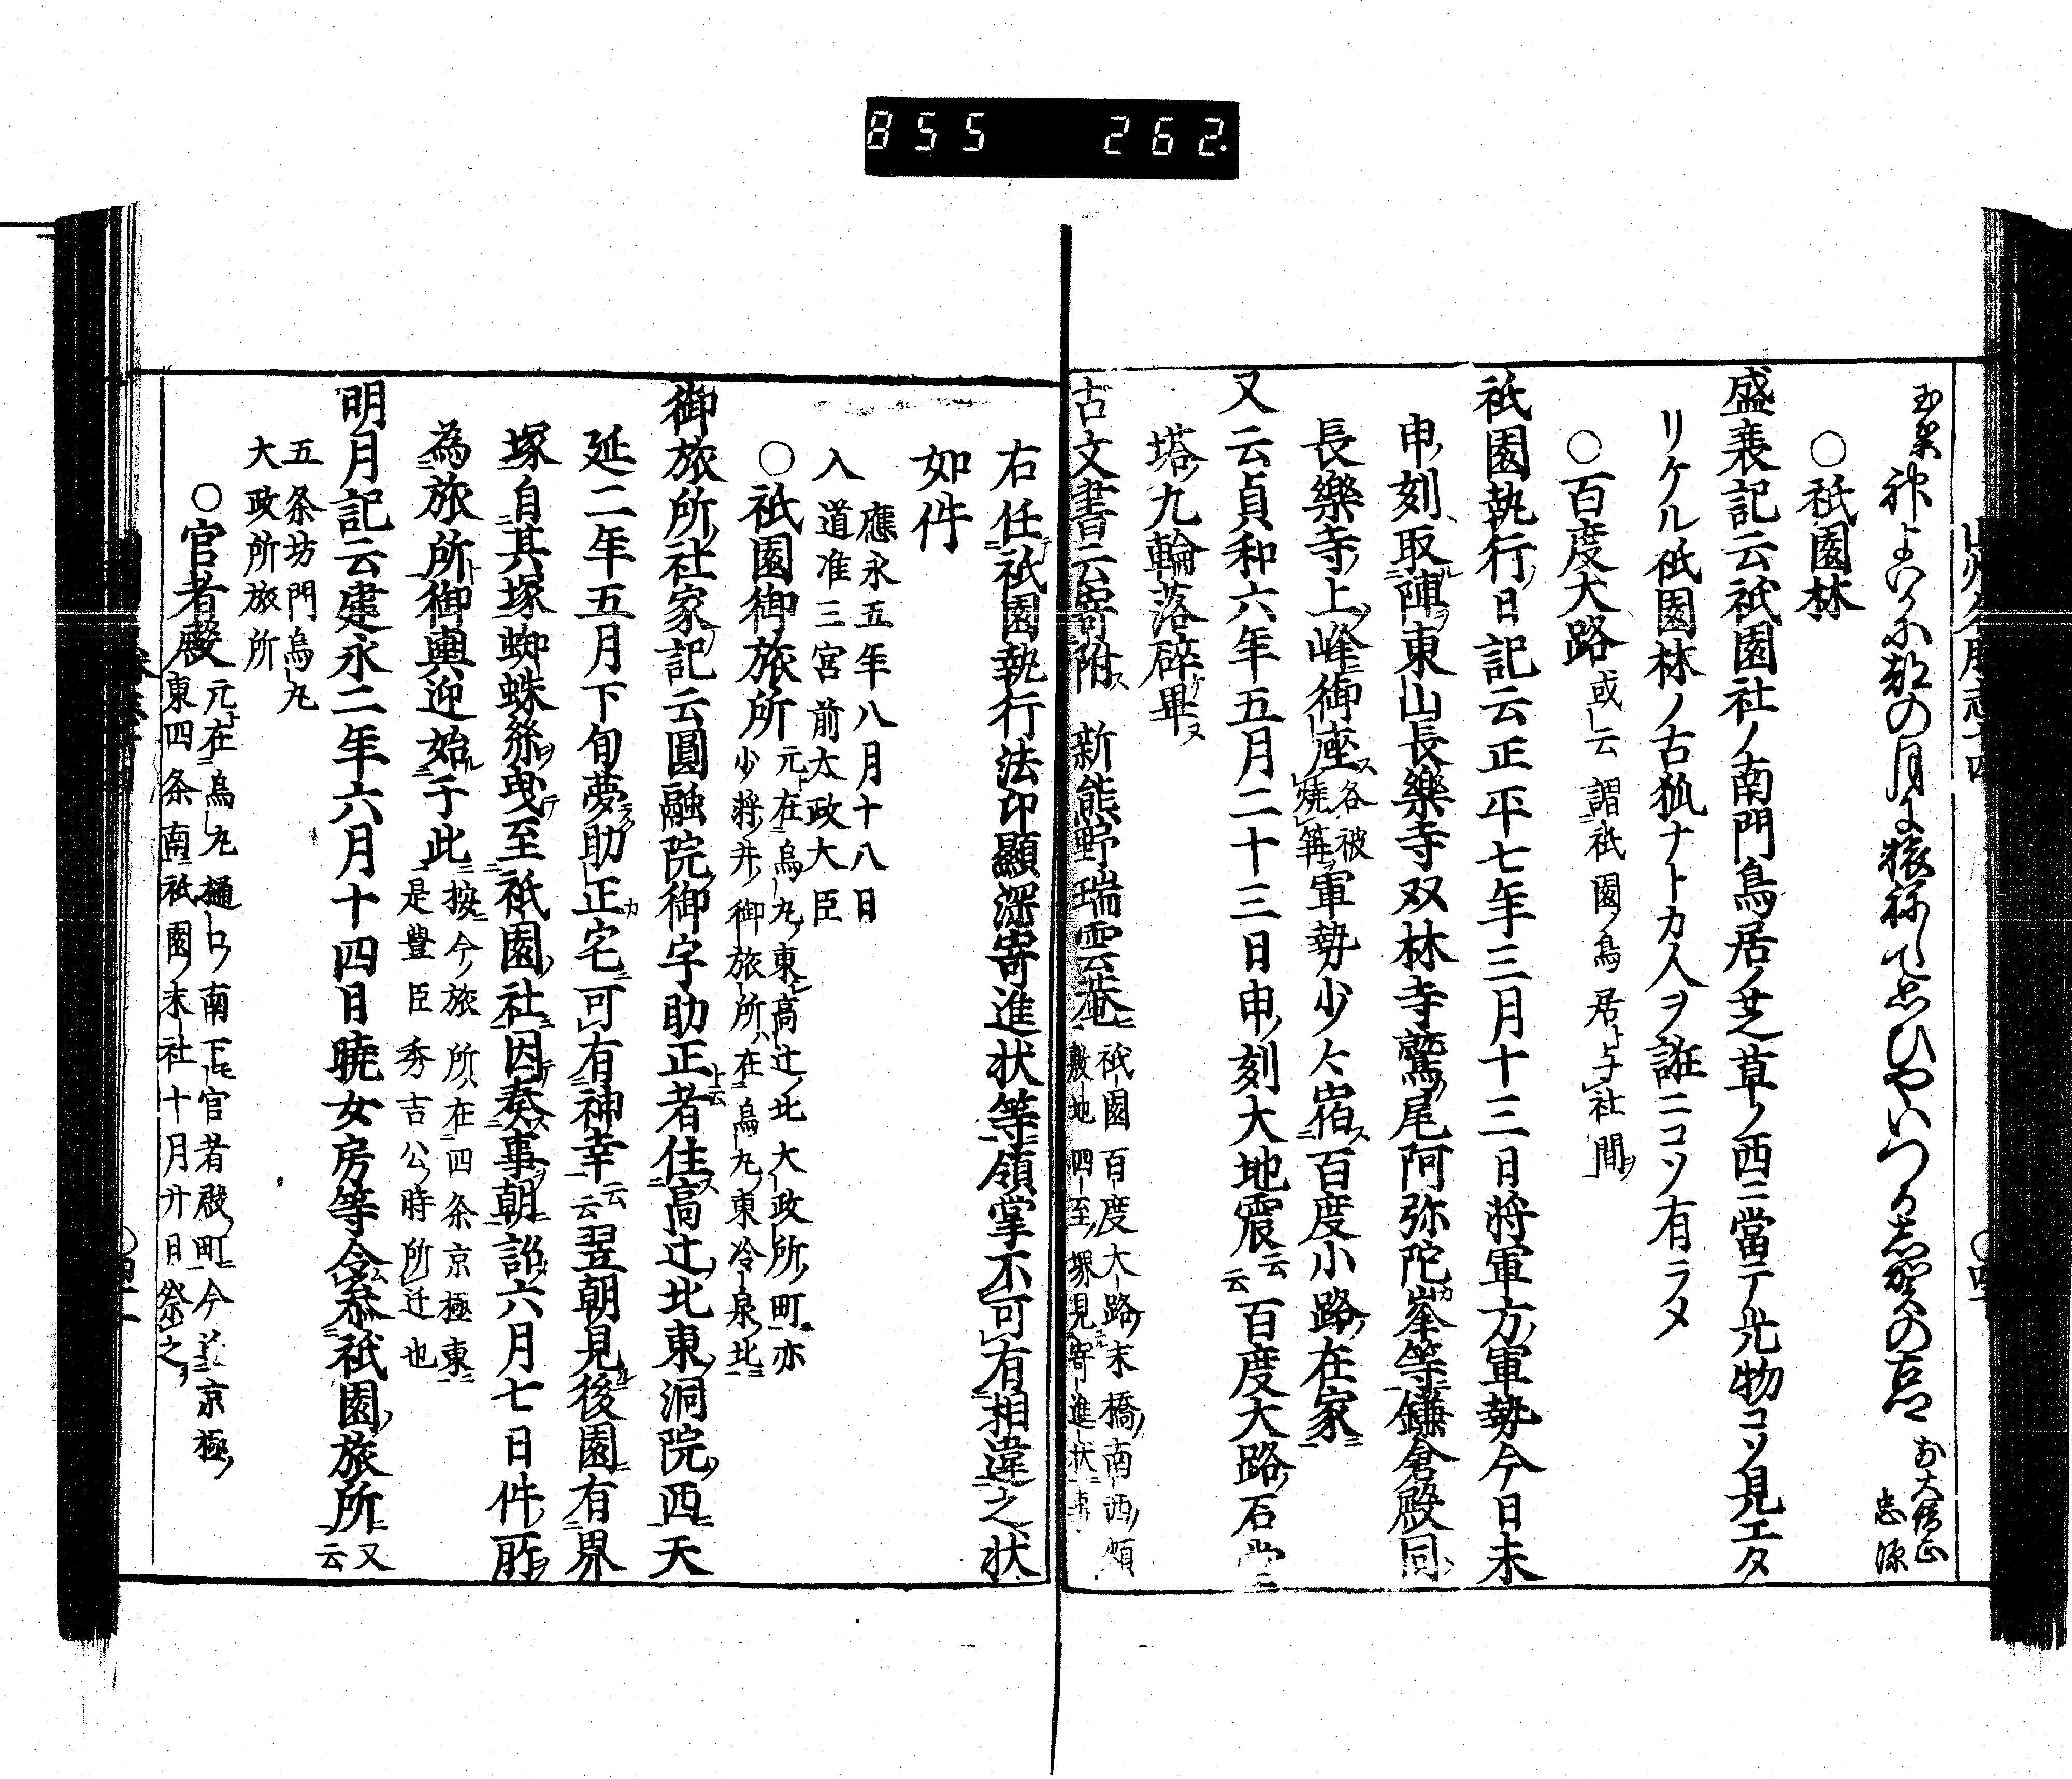 855 262.
玉葉
前大僧正
忠源
○祇園林
盛衰記云祇園社ノ南門鳥居ノ芝草ノ西ニ當テ光物コソ見エタ
リケル祇園林ノ古狐ナトカ人ヲ誑ニコソ有ラメ
○百度大路 或云 謂祇園ノ鳥居ト与社間ヲ
祇園執行ノ日記云正平七年三月十三日将軍方ノ軍勢今日未
申ノ刻取陣ヲ東山長樂寺双林寺鷲ノ尾阿弥陀峯等鎌倉殿同ク
長樂寺ノ上ノ峰御座ス 各被
燒篝ヲ 軍勢少々宿ス百度小路ノ在家
又云貞和六年五月二十三日申ノ刻大地震云云百度大路ノ石
塔ノ九輪落碎畢ヌ
古文書云寄附ス 新熊野瑞雲菴 祇園百度大路ノ末橋ノ南ノ西ノ頬
敷地四至ノ堺見寄進状
右任祇園執行法印顯深寄進状等領掌不可有相違之状
如件
應永五年八月十八日
入道准三宮前太政大臣
○祇園御旅所 元ト在烏丸ノ東高辻ノ北大政所ノ町亦
少將ノ井ノ御旅所ハ在烏丸ノ東冷泉ノ北
御旅所ノ社家ノ記云圓融院ノ御宇助正者住高辻ノ北東ノ洞院ノ西天
延二年五月下旬夢助正カ宅可有神幸云云翌朝見後園有界
塚自其塚蜘蛛絲ヲ曳テ至祇園ノ社因テ奏ス事ヲ朝詔六月七日件ノ所ヲ
為旅所ト御輿迎始于此 按今ノ旅所ハ在四条京極東
是豊臣秀吉公ノ時所迁也
明月記云建永二年六月十四日暁女房等令參祇園ノ旅所 又
云
五条坊門烏丸
大政所旅所
○官者殿 元ト在烏丸樋口ノ南下ル官者殿ノ町今 京極ノ
東四条南祇園ノ末社十月廿日祭之ヲ